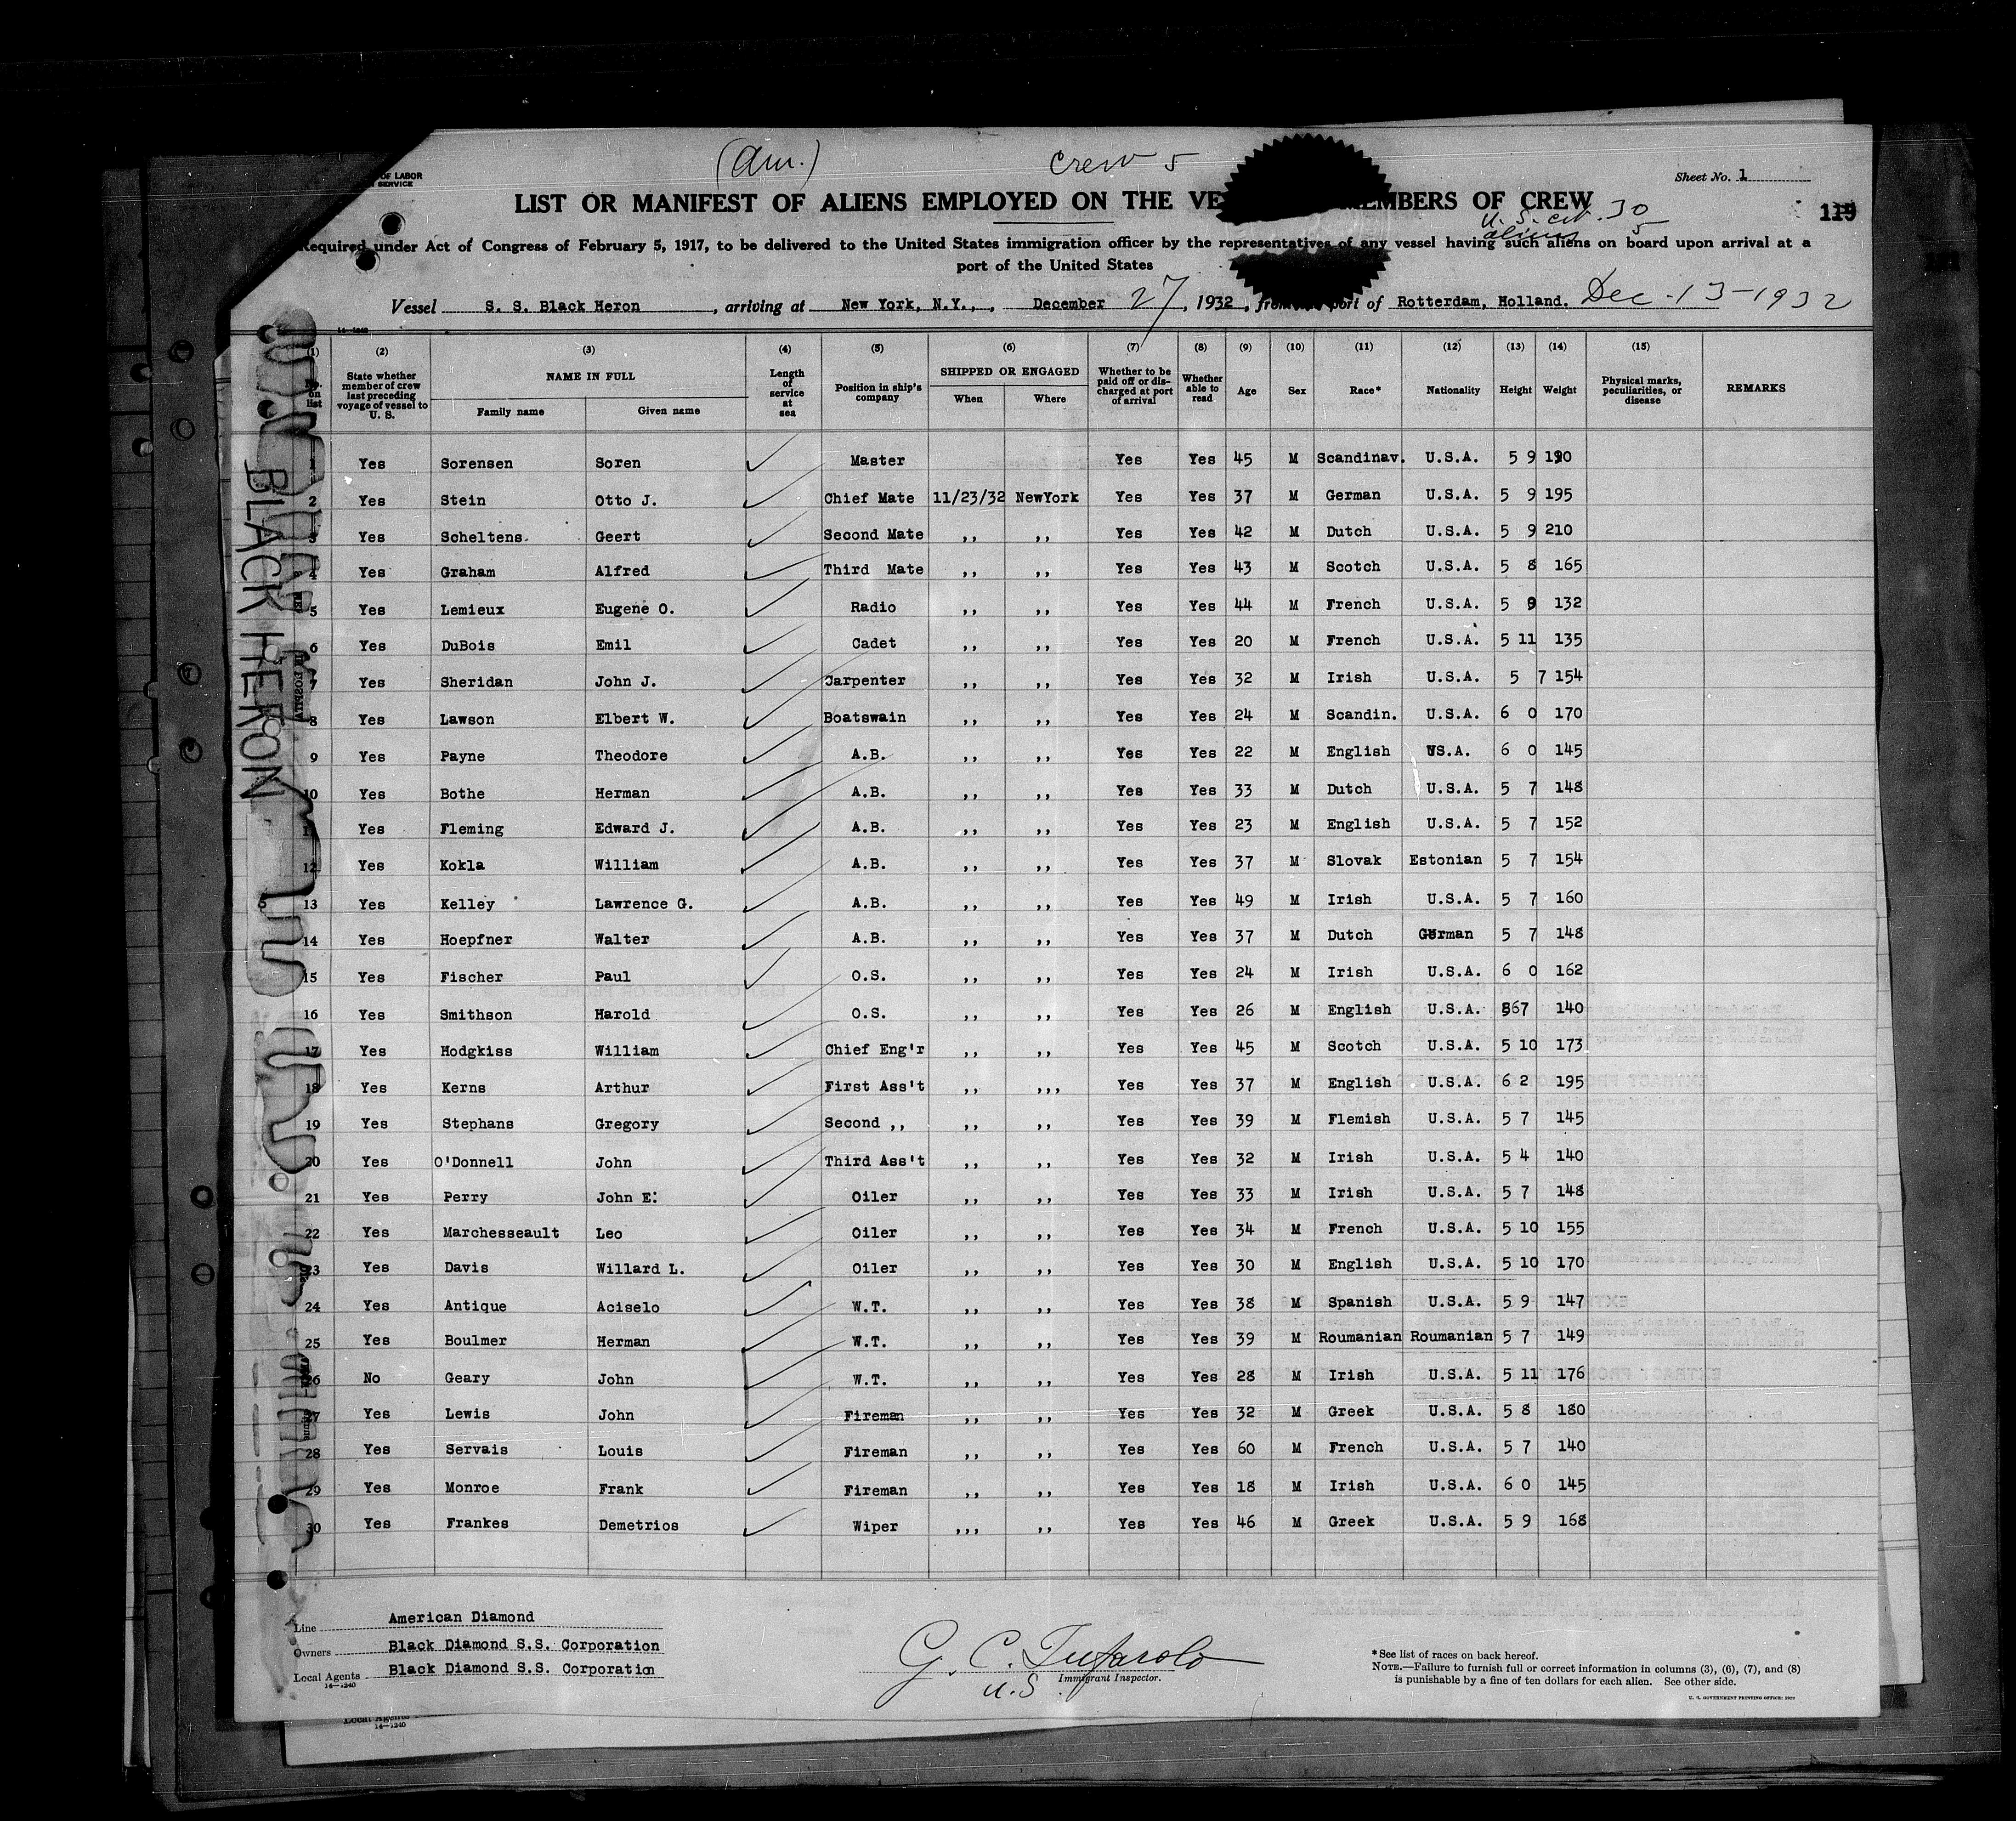 (Am.) Crew 5
OF LABOR
SERVICE
Sheet No. 1
LIST OR MANIFEST OF ALIENS EMPLOYED ON THE VE MEMBERS OF CREW
U. S. cit. 30
aliens 5
119
Required under Act of Congress of February 5, 1917, to be delivered to the United States immigration officer by the representatives of any vessel having such aliens on board upon arrival at a
port of the United States
Vessel S. S. Black Heron, arriving at New York, N.Y., December 27, 1932, from port of Rotterdam, Holland. Dec-13-1932
14—1240
(1) (2) (3) (4) (5) (6) (7) (8) (9) (10) (11) (12) (13) (14) (15)
No. on list State whether member of crew last preceding voyage of vessel to U. S. NAME IN FULL Length of service at sea Position in ship's company SHIPPED OR ENGAGED Whether to be paid off or discharged at port of arrival Whether able to read Age Sex Race* Nationality Height Weight Physical marks, peculiarities, or disease REMARKS
Family name Given name When Where
BLACK HERON
1 Yes Sorensen Soren Master Yes Yes 45 M Scandinav. U.S.A. 5 9 190
2 Yes Stein Otto J. Chief Mate 11/23/32 NewYork Yes Yes 37 M German U.S.A. 5 9 195
3 Yes Scheltens Geert Second Mate ,, ,, Yes Yes 42 M Dutch U.S.A. 5 9 210
4 Yes Graham Alfred Third Mate ,, ,, Yes Yes 43 M Scotch U.S.A. 5 8 165
5 Yes Lemieux Eugene O. Radio ,, ,, Yes Yes 44 M French U.S.A. 5 9 132
6 Yes DuBois Emil Cadet ,, ,, Yes Yes 20 M French U.S.A. 5 11 135
7 Yes Sheridan John J. Carpenter ,, ,, Yes Yes 32 M Irish U.S.A. 5 7 154
8 Yes Lawson Elbert W. Boatswain ,, ,, Yes Yes 24 M Scandin. U.S.A. 6 0 170
9 Yes Payne Theodore A.B. ,, ,, Yes Yes 22 M English US.A. 6 0 145
10 Yes Bothe Herman A.B. ,, ,, Yes Yes 33 M Dutch U.S.A. 5 7 148
11 Yes Fleming Edward J. A.B. ,, ,, Yes Yes 23 M English U.S.A. 5 7 152
12 Yes Kokla William A.B. ,, ,, Yes Yes 37 M Slovak Estonian 5 7 154
13 Yes Kelley Lawrence G. A.B. ,, ,, Yes Yes 49 M Irish U.S.A. 5 7 160
14 Yes Hoepfner Walter A.B. ,, ,, Yes Yes 37 M Dutch German 5 7 148
15 Yes Fischer Paul O.S. ,, ,, Yes Yes 24 M Irish U.S.A. 6 0 162
16 Yes Smithson Harold O.S. ,, ,, Yes Yes 26 M English U.S.A. 567 140
17 Yes Hodgkiss William Chief Eng'r ,, ,, Yes Yes 45 M Scotch U.S.A. 5 10 173
18 Yes Kerns Arthur First Ass't ,, ,,, Yes Yes 37 M English U.S.A. 6 2 195
19 Yes Stephans Gregory Second ,, ,, ,, Yes Yes 39 M Flemish U.S.A. 5 7 145
20 Yes O'Donnell John Third Ass't ,, ,, Yes Yes 32 M Irish U.S.A. 5 4 140
21 Yes Perry John E: Oiler ,, ,, Yes Yes 33 M Irish U.S.A. 5 7 148
22 Yes Marchesseault Leo Oiler ,, ,, Yes Yes 34 M French U.S.A. 5 10 155
23 Yes Davis Willard L. Oiler ,, ,, Yes Yes 30 M English U.S.A. 5 10 170
24 Yes Antique Aciselo W.T. ,, ,, Yes Yes 38 M Spanish U.S.A. 5 9 147
25 Yes Boulmer Herman W.T. ,, ,, Yes Yes 39 M Roumanian Roumanian 5 7 149
26 No Geary John W.T. ,, ,, Yes Yes 28 M Irish U.S.A. 5 11 176
27 Yes Lewis John Fireman ,, ,, Yes Yes 32 M Greek U.S.A. 5 8 180
28 Yes Servais Louis Fireman ,, ,, Yes Yes 60 M French U.S.A. 5 7 140
29 Yes Monroe Frank Fireman ,, ,, Yes Yes 18 M Irish U.S.A. 6 0 145
30 Yes Frankes Demetrios Wiper ,,, ,, Yes Yes 46 M Greek U.S.A. 5 9 168
Line American Diamond
Owners Black Diamond S.S. Corporation
Local Agents Black Diamond S.S. Corporation
14—1240
G. C. Tufarolo
U.S. Immigrant Inspector.
*See list of races on back hereof.
NOTE.—Failure to furnish full or correct information in columns (3), (6), (7), and (8)
is punishable by a fine of ten dollars for each alien. See other side.
U. S. GOVERNMENT PRINTING OFFICE: 1929
Local Agents
14—1240